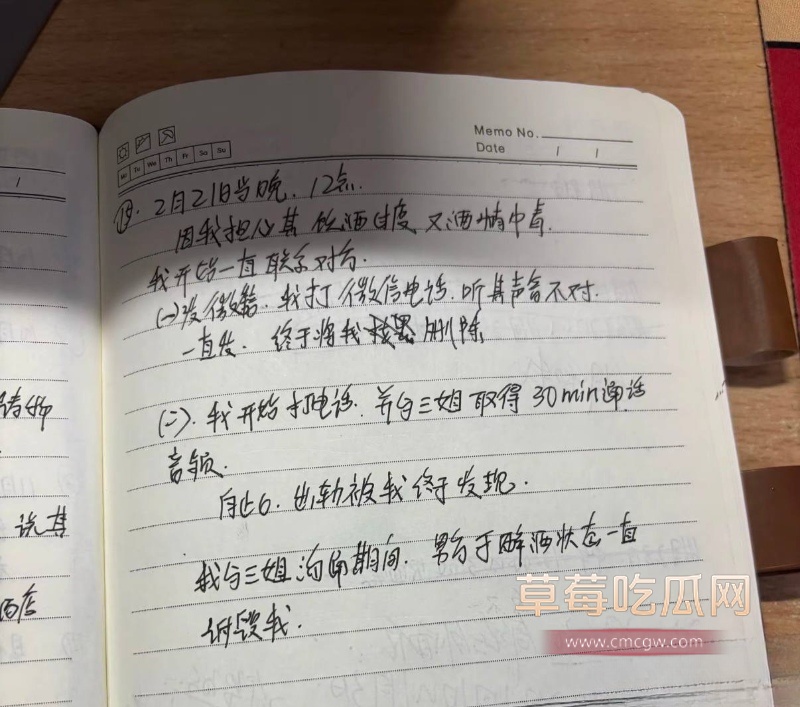 Memo No.
Date / /
Mo Tu We Th Fr Sa Su
⑲. 2月21日当晚. 12点.
因我担心其饮酒过度 又酒精中毒.
我开始一直联系对方.
(一)发微信. 我打微信电话. 听其声音不对.
一直发. 终于将我 删除
(二). 我开始打电话. 并与三姐取得30min通话
音频.
自此. 出轨被我终于发现.
我与三姐沟通期间. 男方于醉酒状态一直
诋毁我.
说其
酒店
草莓吃瓜网
www.cmcgw.com